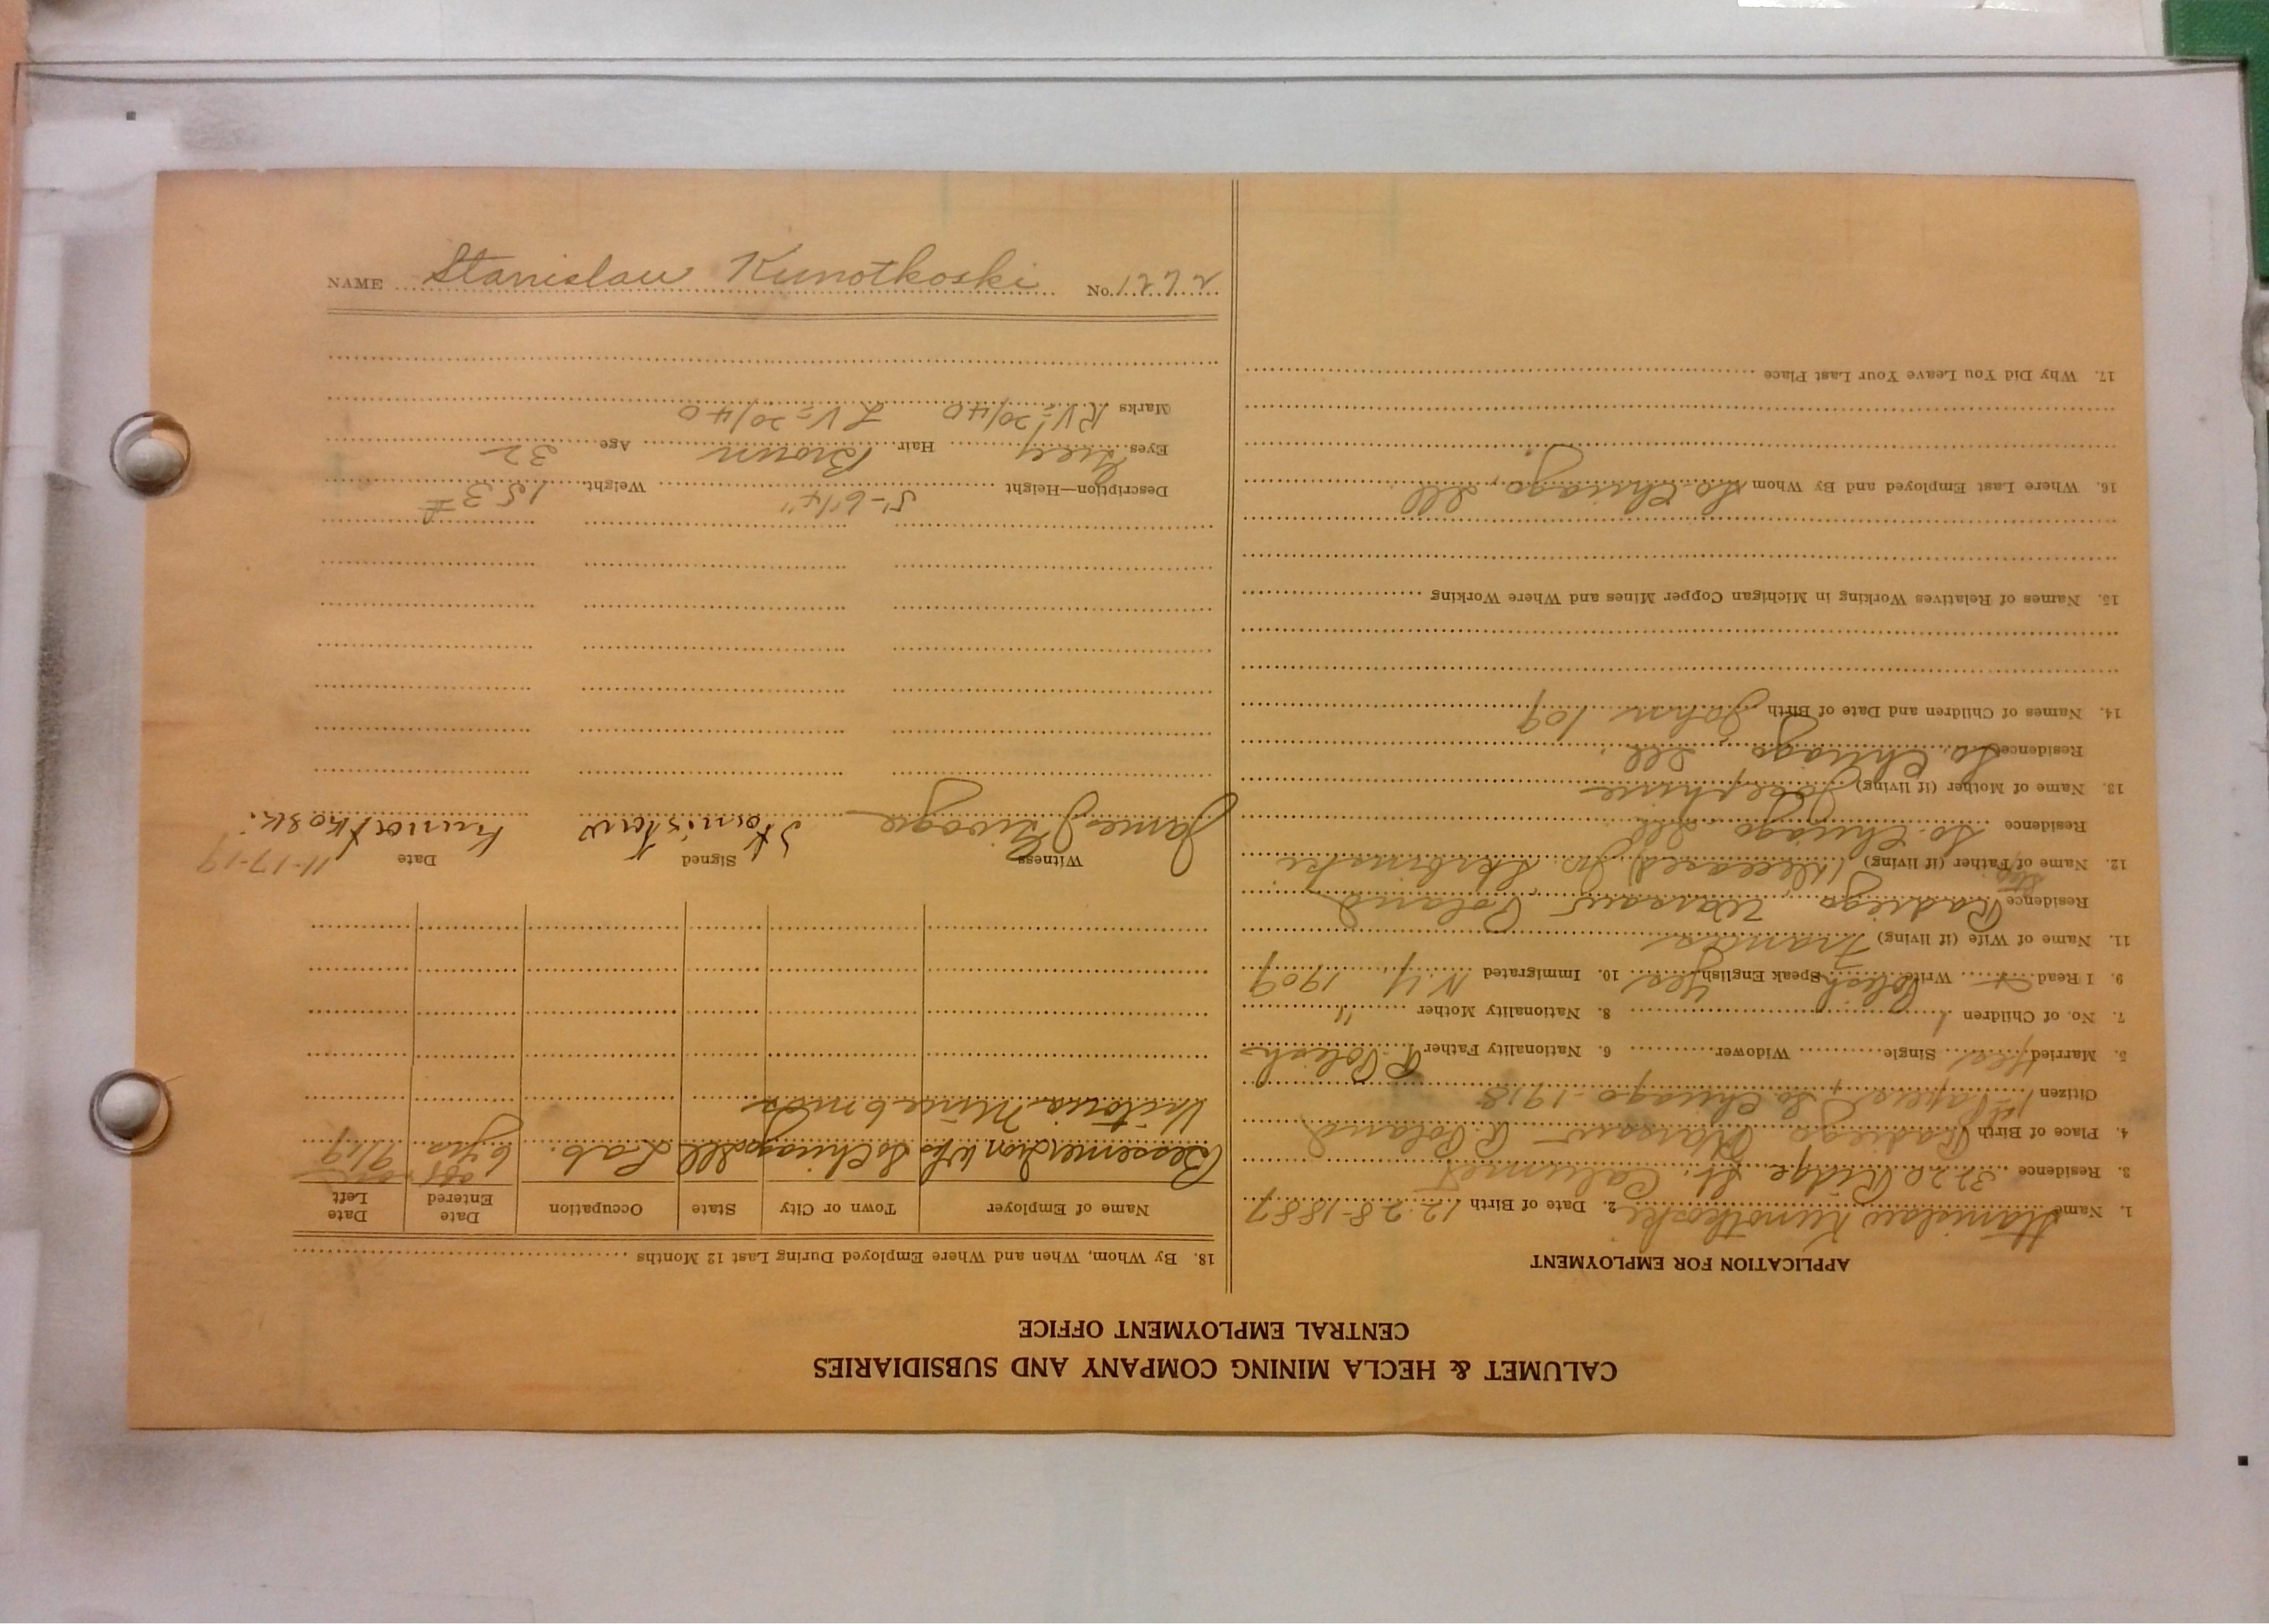 CALUMET & HECLA MINING COMPANY AND SUBSIDIARIES
CENTRAL EMPLOYMENT OFFICE
APPLICATION FOR EMPLOYMENT
1. Name Stanislaw Kunotkoski 2. Date of Birth 12-28-1887
3. Residence 3220 Ridge St. Calumet
4. Place of Birth Radiego Warsaw R. Poland
Citizen 1st Papers, So Chicago - 1918
5. Married yes Single Widower 6. Nationality Father R. Polish
7. No. of Children 1 8. Nationality Mother "
9. I Read x Write Polish Speak English Yes 10. Immigrated N.Y. 1909
11. Name of Wife (if living)
Residence Radiego, Warsaw Poland
12. Name of Step Father (if living) (deceased)
Residence So. Chicago Ill
13. Name of Mother (if living) Josephine
Residence So. Chicago Ill.
14. Names of Children and Date of Birth John 10y
15. Names of Relatives Working in Michigan Copper Mines and Where Working
16. Where Last Employed and By Whom So. Chicago, Ill
17. Why Did You Leave Your Last Place
18. By Whom, When and Where Employed During Last 12 Months
Name of Employer Town or City State Occupation Date Entered Date Left
So Chicago Ill Lab. 6 yrs 9/19
Victoria Mine 6 mos
Witness Signed Date 11-17-19
James Stanisław Kunotkoski.
Description—Height 5'-6¼" Weight 153#
Eyes Grey Hair Brown Age 32
Marks RV=20/40 LV=20/40
NAME Stanislaw Kunotkoski No. 1272